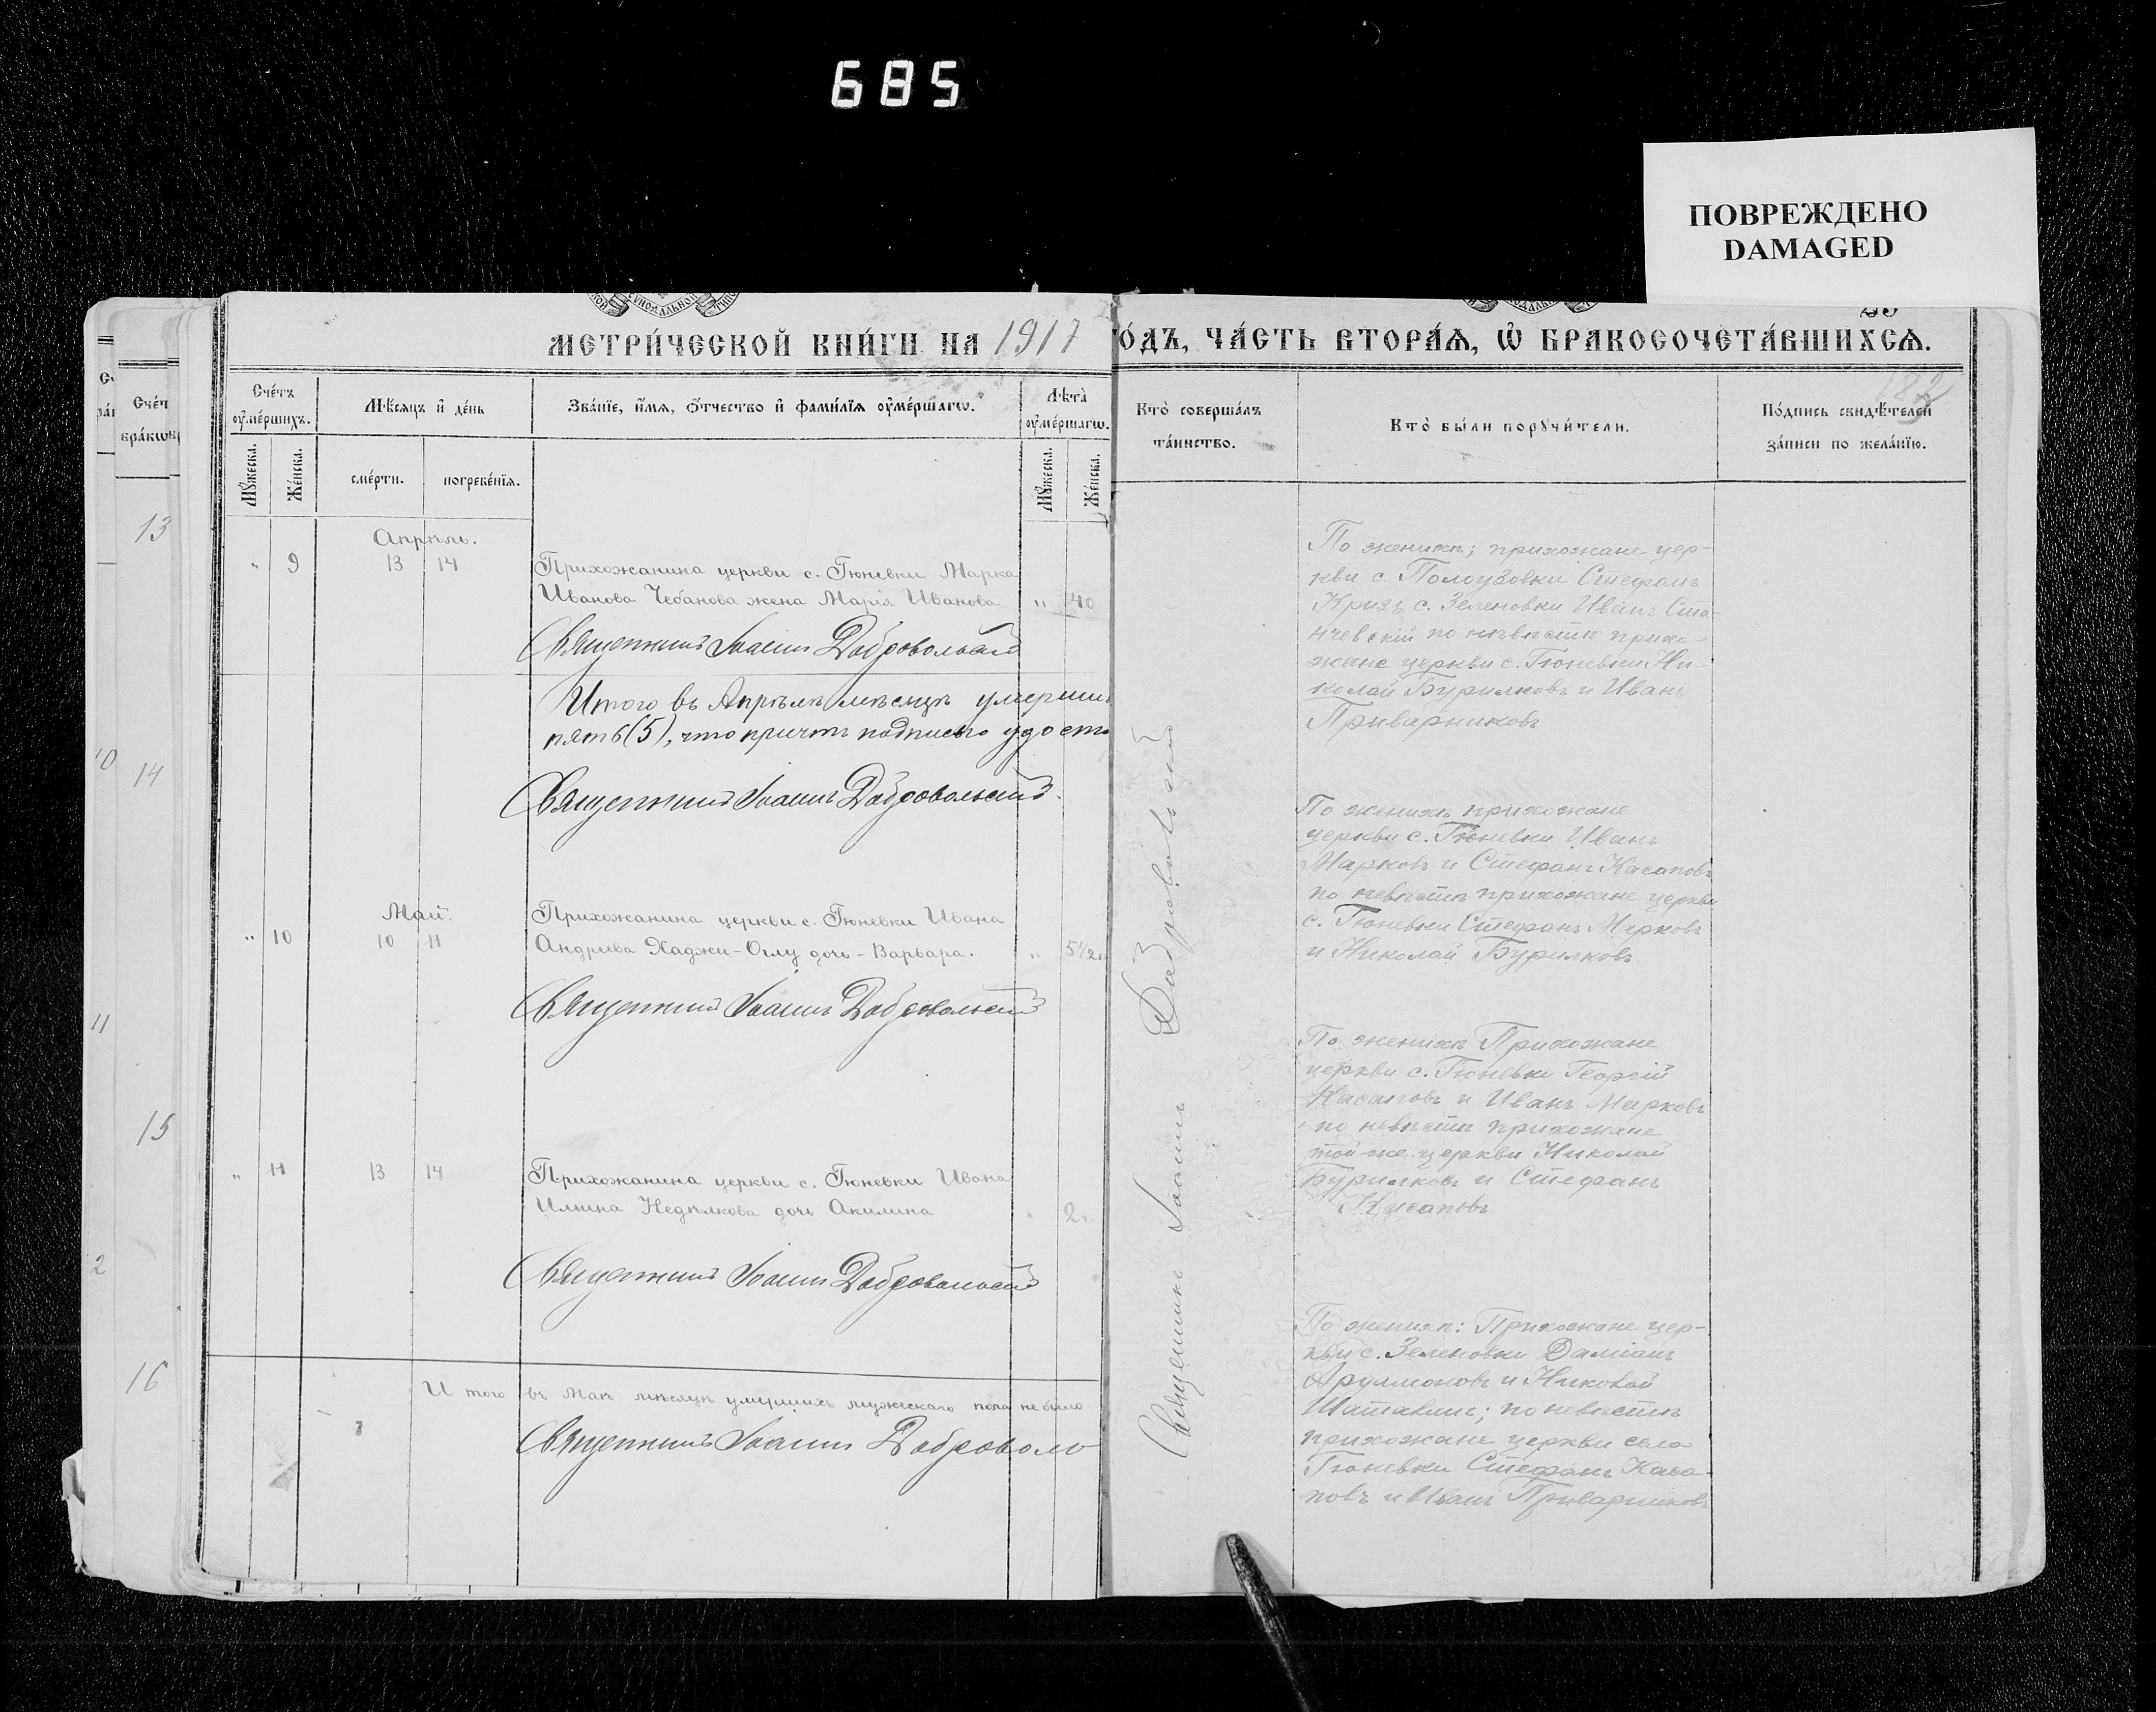 685
ПОВРЕЖДЕНО
DAMAGED
МЕТРИ́ЧЕСКОЙ КНИ́ГИ НА 1917
Сче́тъ ᲂу҆ме́ршихъ.
Мꙋ́жеска.
Же́нска.
Мѣ́сяцъ и҆ де́нь
сме́рти.
погребе́нїя.
Зва́нїе, и҆́мя, ѻ҆́тчество и҆ фами́лїя ᲂу҆ме́ршагѡ.
Лѣта̀ ᲂу҆ме́ршагѡ.
Мꙋ́жеска.
Же́нска.
Апрѣль.
" 9 13 14 Прихожанина церкви с. Гюневки, Марка
Иванова Чебанова жена Марія Иванова " 40
Священникъ Іоаннъ Добровольскій
Итого въ Апрѣлѣ мѣсяцѣ умерши
пять (5), что причтъ подписью удосто
Священникъ Іоаннъ Добровольскій.
Май.
Прихожанина церкви с. Гюневки Ивана
" 10 10 11 Андреева Хаджи-Оглу дочь - Варвара. " 5 1/2
Священникъ Іоаннъ Добровольскій
" 11 13 14 Прихожанина церкви с. Гюневки Ивана
Ильина Недѣлкова дочь Акилина " 2г
Священникъ Іоаннъ Добровольскій
Итого въ Маѣ мѣсяцѣ умершихъ мужескаго пола не было
Священникъ Іоаннъ Доброволь
Сче́т
бра́кѡв
13
14
15
16
10
11
2
О́ДЪ, ЧА́СТЬ ВТОРА́Ѧ, Ѡ҆ БРАКОСОЧЕТА́ВШИХСѦ.
Кто̀ соверша́лъ
та́инство.
Кто̀ бы́ли порꙋчи́тели.
По́дпись свидѣ́телей
за́писи по жела́нїю.
Священникъ Іоаннъ Добровольскій
По женихѣ; прихожане цер-
кви с. Пологузовки Стефанъ
с. Зеленовки Иванъ Ста
нчевскій по невѣстѣ прихо-
жане церкви с. Гюневки Ни-
колай Бурилковъ и Иванъ
Приварниковъ
По женихѣ прихожане
церкви с. Гюневки Иванъ
Марковъ и Стефанъ Касаповъ
по невѣстѣ прихожане церкви
с. Гюневки Стефанъ Марковъ
и Николай Бурилковъ.
По женихѣ Прихожане
церкви с. Гюневки Георгій
Касаповъ и Иванъ Марковъ
по невѣстѣ прихожане
той-же церкви Николай
Бурилковъ и Стефанъ
Касаповъ
По женихѣ: Прихожане цер-
кви с. Зеленовки Даміанъ
и Николай
по невѣстѣ
прихожане церкви села
Гюневки Стефанъ Каса-
повъ и Иванъ Приварниковъ